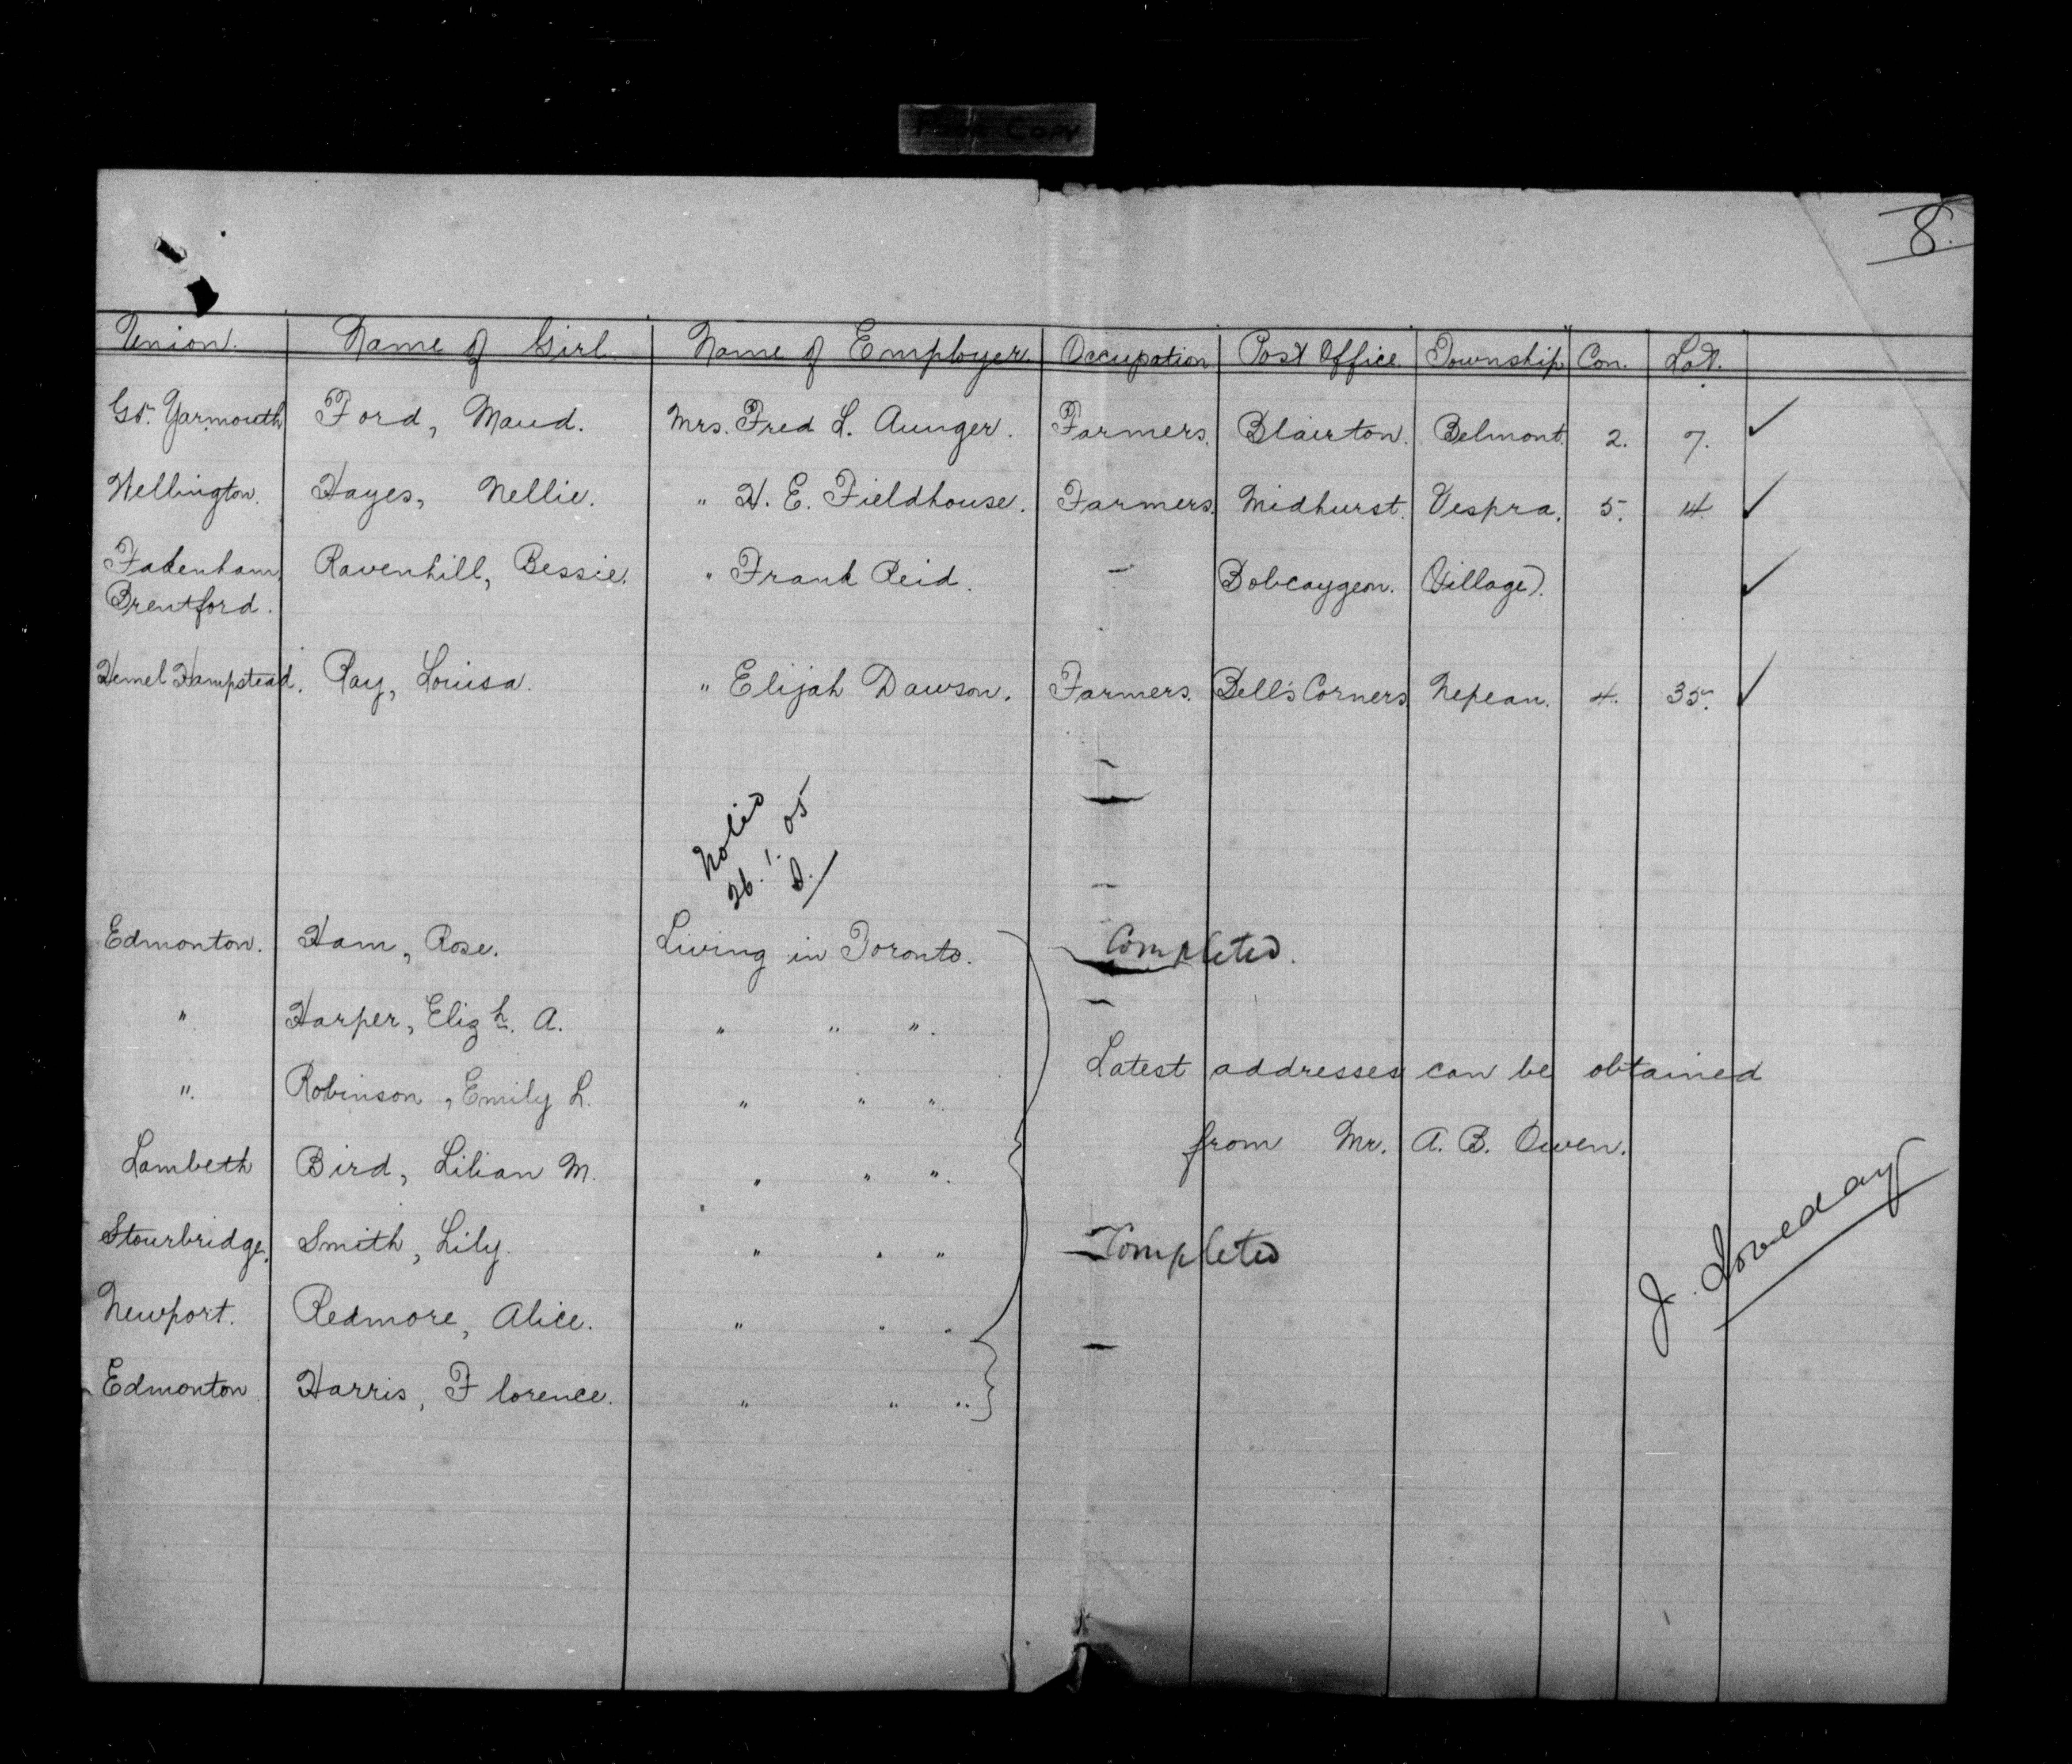 Poor Copy
8.
Union. Name of Girl. Name of Employer. Occupation Post Office. Township Con. Lot.
Gt. Yarmouth Ford, Maud. Mrs. Fred L. Aunger. Farmers. Blairton. Belmont. 2. 7. ✓
Wellington. Hayes, Nellie. " H. E. Fieldhouse. Farmers. Midhurst. Vespra. 5. 14. ✓
Fakenham, Ravenhill, Bessie. " Frank Reid. - Bobcaygeon. (Village). ✓
Brentford.
Hemel Hampstead. Ray, Louisa. " Elijah Dawson. Farmers. Bell's Corners Nepean. 4. 35. ✓
Noted
26. 1. 05
D.
Edmonton. Ham, Rose. Living in Toronto. Completed.
" Harper, Elizh. A. " " ".
Latest addresses can be obtained
". Robinson, Emily L. " " ".
from Mr. A. B. Owen.
Lambeth Bird, Lilian M. " " ".
Stourbridge. Smith, Lily. " " " Completed
J. Loveday
Newport. Redmore, Alice. " " "
Edmonton Harris, Florence. " " "